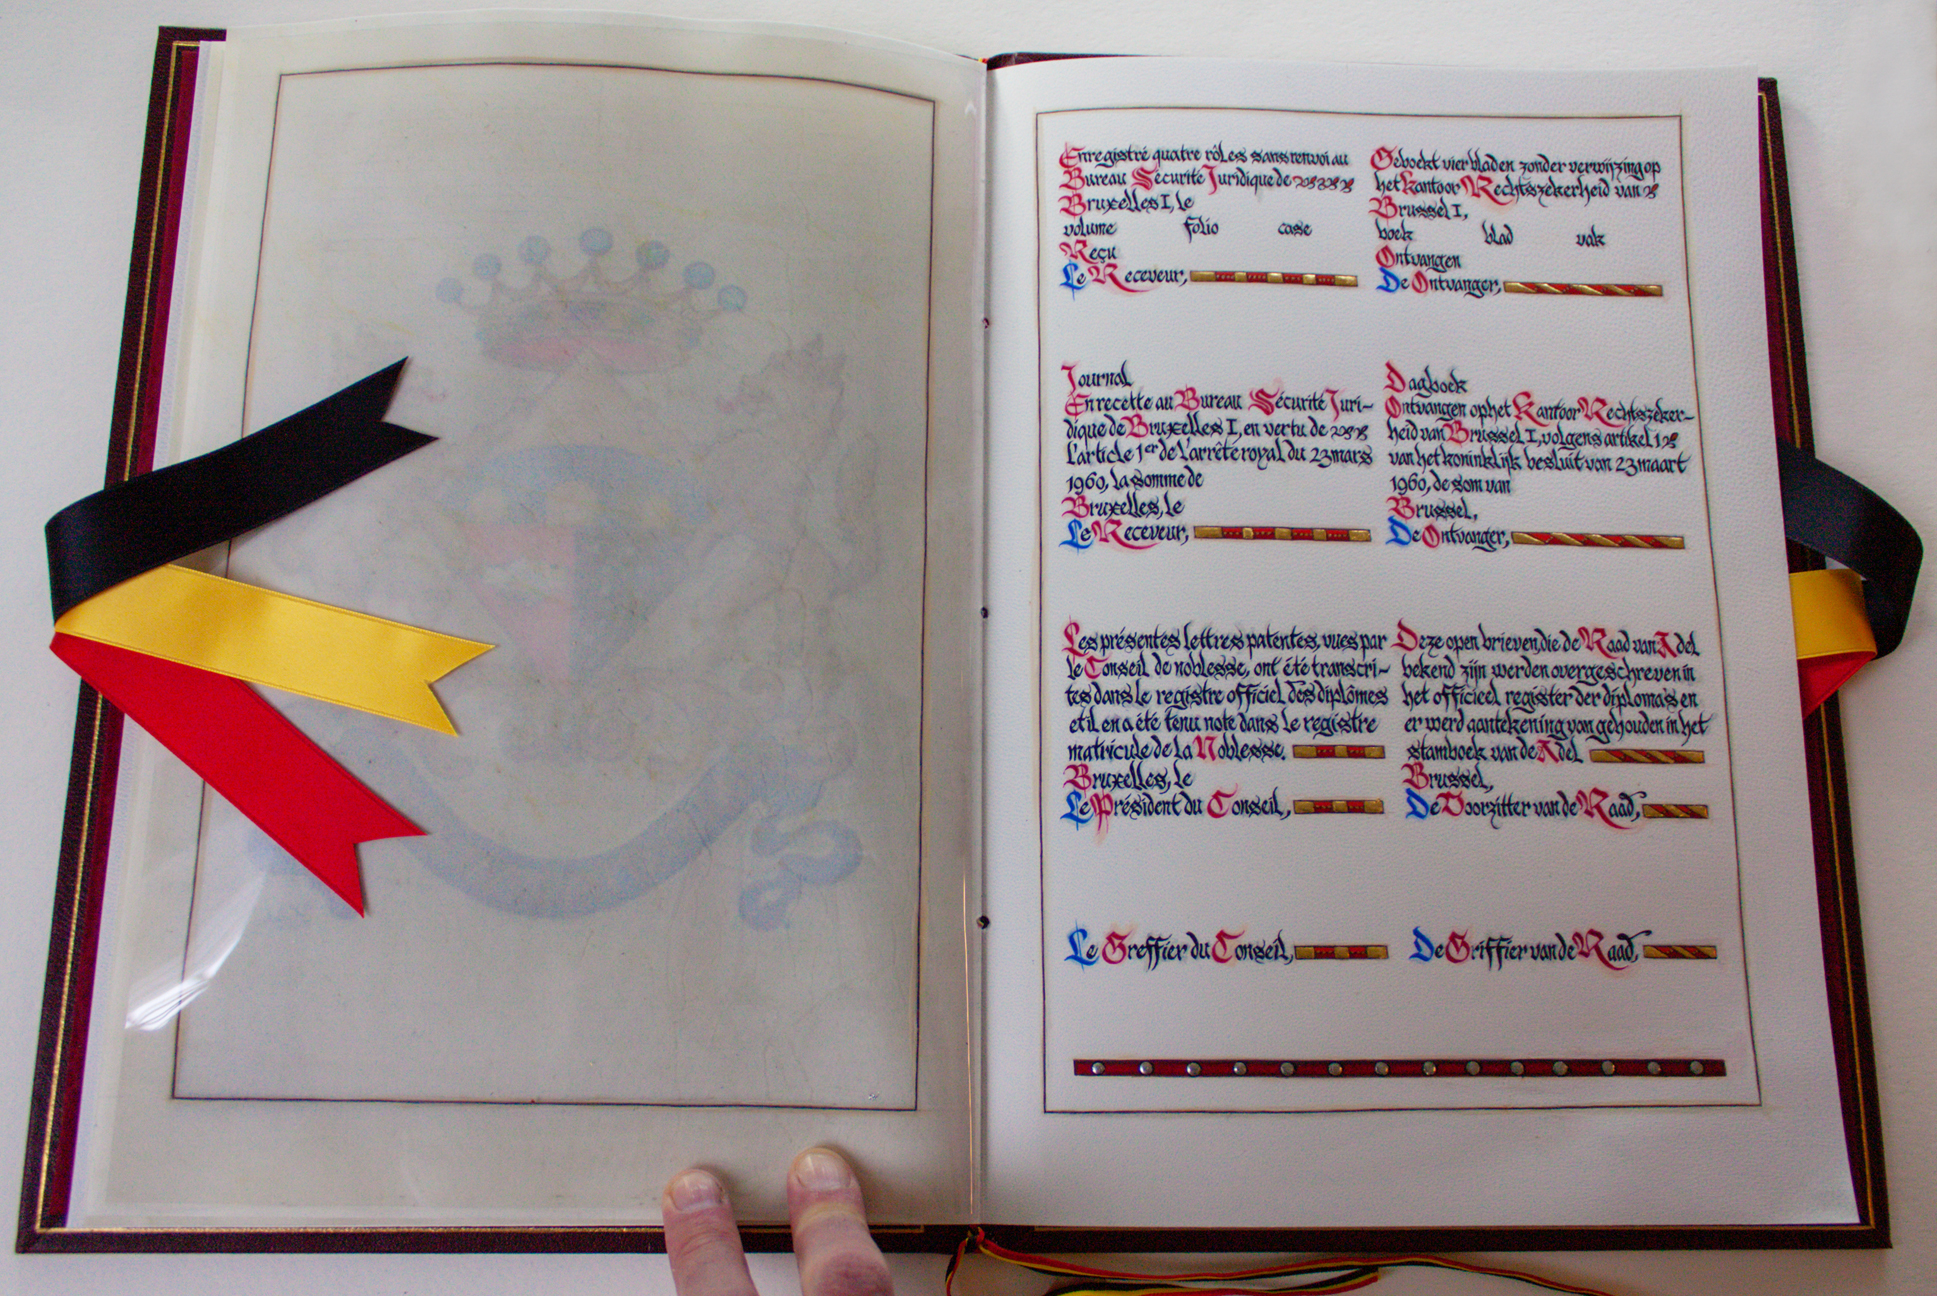 Enregistré quatre rôles sans renvoi au
Bureau Sécurité Juridique de
Bruxelles I, le
volume folio case
Reçu
Le Receveur,
Journal
En recette au Bureau Sécurité Juri-
dique de Bruxelles I, en vertu de
l'article 1er de l'arrêté royal du 23 mars
1960, la somme de
Bruxelles, le
Le Receveur,
Les présentes lettres patentes, vues par
le Conseil de noblesse, ont été transcri-
tes dans le registre officiel des diplômes
et il en a été tenu note dans le registre
matricule de la Noblesse.
Bruxelles, le
Le Président du Conseil,
Le Greffier du Conseil,
Geboekt vier bladen zonder verwijzing op
het Kantoor Rechtszekerheid van
Brussel I,
boek blad vak
Ontvangen
De Ontvanger,
Dagboek
Ontvangen op het Kantoor Rechtszeker-
heid van Brussel I, volgens artikel 1
van het koninklijk besluit van 23 maart
1960, de som van
Brussel,
De Ontvanger,
Deze open brieven, die de Raad van Adel
bekend zijn werden overgeschreven in
het officieel register der diploma's en
er werd aantekening van gehouden in het
stamboek van de Adel
Brussel,
De Voorzitter van de Raad,
De Griffier van de Raad,